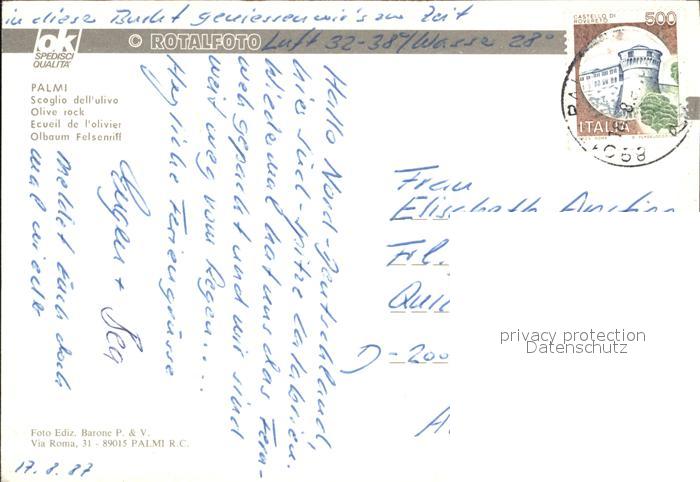 in dieser Bucht geniessen wir's zur Zeit
Luft 32-38°/Wasser 28°
ok
SPEDISCI
QUALITA'
© ROTALFOTO
PALMI
Scoglio dell'ulivo
Olive rock
Ecueil de l'olivier
Olbaum Felsenriff
CASTELLO DI
ROVERETO
500
ITALIA
Hallo Nord-Deutschland,
hier Süd-Spitze Calabrien.
Wiedermal hat uns das Fern-
weh gepackt und wir sind
weit weg vom Regen...
Herzliche Feriengrüsse
Meldet Euch doch
mal wieder
Frau
Elisabeth
D-200
privacy protection
Datenschutz
Foto Ediz. Barone P. & V.
Via Roma, 31 - 89015 PALMI R.C.
17.8.87